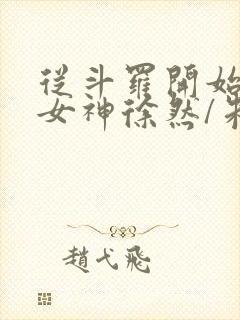 從斗羅開始
女神徐然/朱
趙弋飛